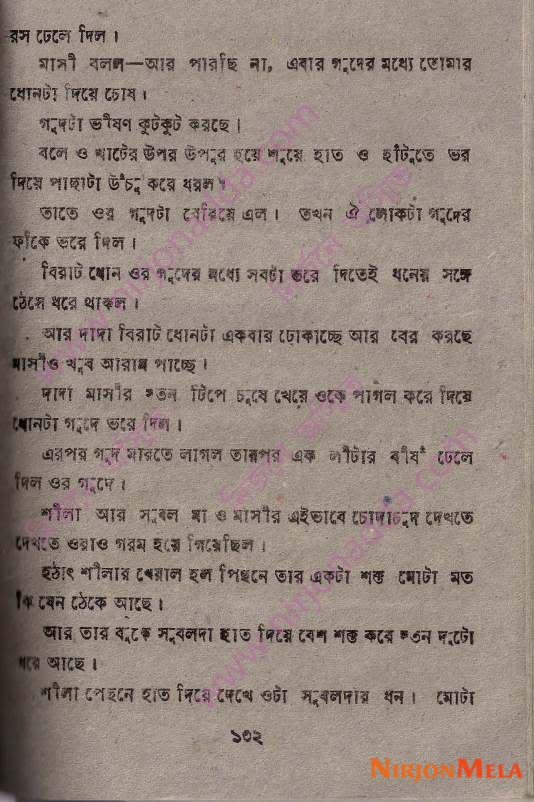 রস ঢেলে দিল।
মাসী বলল—আর পারছি না, এবার গুদের মধ্যে তোমার
ধোনটা দিয়ে চোষ।
গুদটা ভীষণ কুটকুট করছে।
বলে ও খাটের উপর উপুর হয়ে শুয়ে হাত ও হাঁটুতে ভর
দিয়ে পাছাটা উঁচু করে ধরল।
তাতে ওর গুদটা বেরিয়ে এল। তখন ঐ লোকটা গুদের
ফাঁকে ভরে দিল।
বিরাট ধোন ওর গুদের মধ্যে সবটা ভরে দিতেই ধনের সঙ্গে
ঠেসে ধরে থাকল।
আর দাদা বিরাট ধোনটা একবার ঢোকাচ্ছে আর বের করছে
মাসীও খুব আরাম পাচ্ছে।
দাদা মাসীর স্তন টিপে চুষে খেয়ে ওকে পাগল করে দিয়ে
ধোনটা গুদে ভরে দিল।
এরপর গুদ মারতে লাগল তারপর এক লীটার বীর্য ঢেলে
দিল ওর গুদে।
শীলা আর সুবল মা ও মাসীর এইভাবে চোদাচুদ দেখতে
দেখতে ওরাও গরম হয়ে গিয়েছিল।
হঠাৎ শীলার খেয়াল হল পিছনে তার একটা শক্ত মোটা মত
কি যেন ঠেকে আছে।
আর তার বুকে সুবলদা হাত দিয়ে বেশ শক্ত করে স্তন দুটো
ধরে আছে।
শীলা পেছনে হাত দিয়ে দেখে ওটা সুবলদার ধন। মোটা
১৩২
NIRJONMELA
www.nirjonadda.com